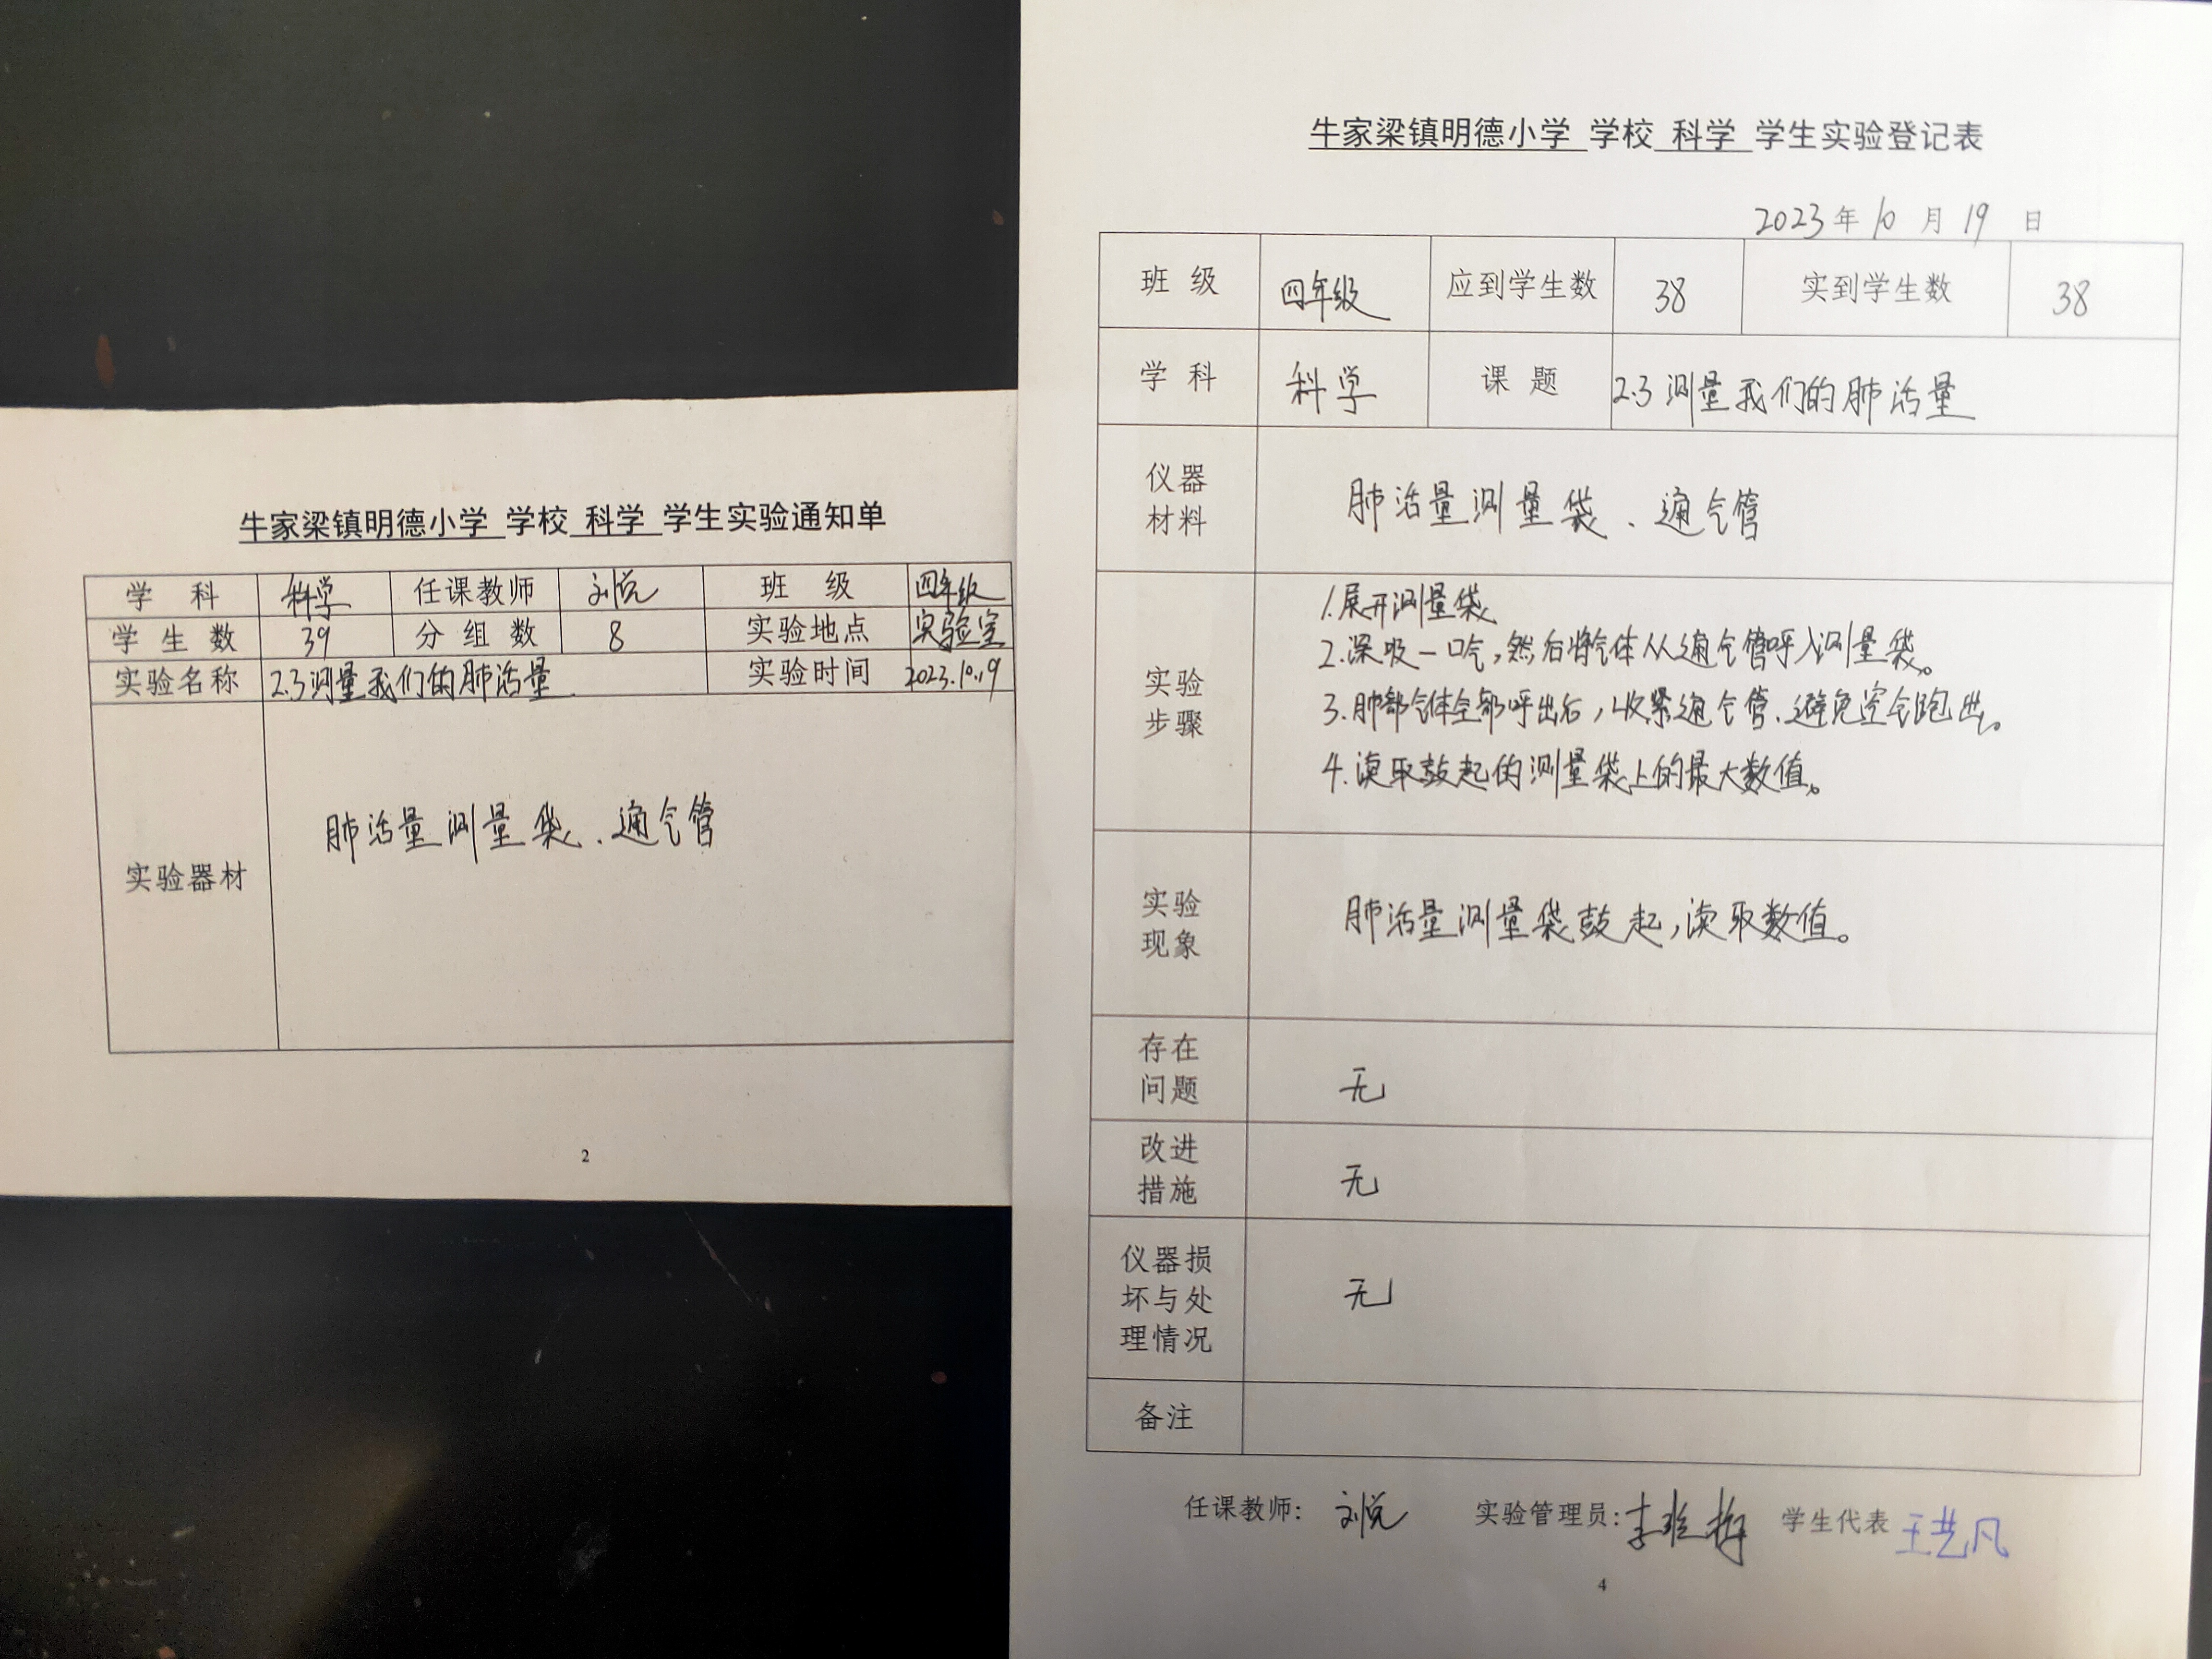 牛家梁镇明德小学 学校 科学 学生实验通知单
学 科 科学 任课教师 刘悦 班 级 四年级
学 生 数 39 分 组 数 8 实验地点 实验室
实验名称 2.3测量我们的肺活量 实验时间 2023.10.19
实验器材 肺活量测量袋、通气管
2
牛家梁镇明德小学 学校 科学 学生实验登记表
2023年 10 月 19 日
班 级 四年级 应到学生数 38 实到学生数 38
学 科 科学 课 题 2.3 测量我们的肺活量
仪器
材料
肺活量测量袋、通气管
实验
步骤
1.展开测量袋
2.深吸一口气,然后将气体从通气管呼入测量袋。
3.肺部气体全部呼出后,收紧通气管、避免空气跑出。
4.读取鼓起的测量袋上的最大数值。
实验
现象
肺活量测量袋鼓起,读取数值。
存在
问题
无
改进
措施
无
仪器损
坏与处
理情况
无
备注
任课教师: 刘悦 实验管理员: 学生代表 王艺凡
4